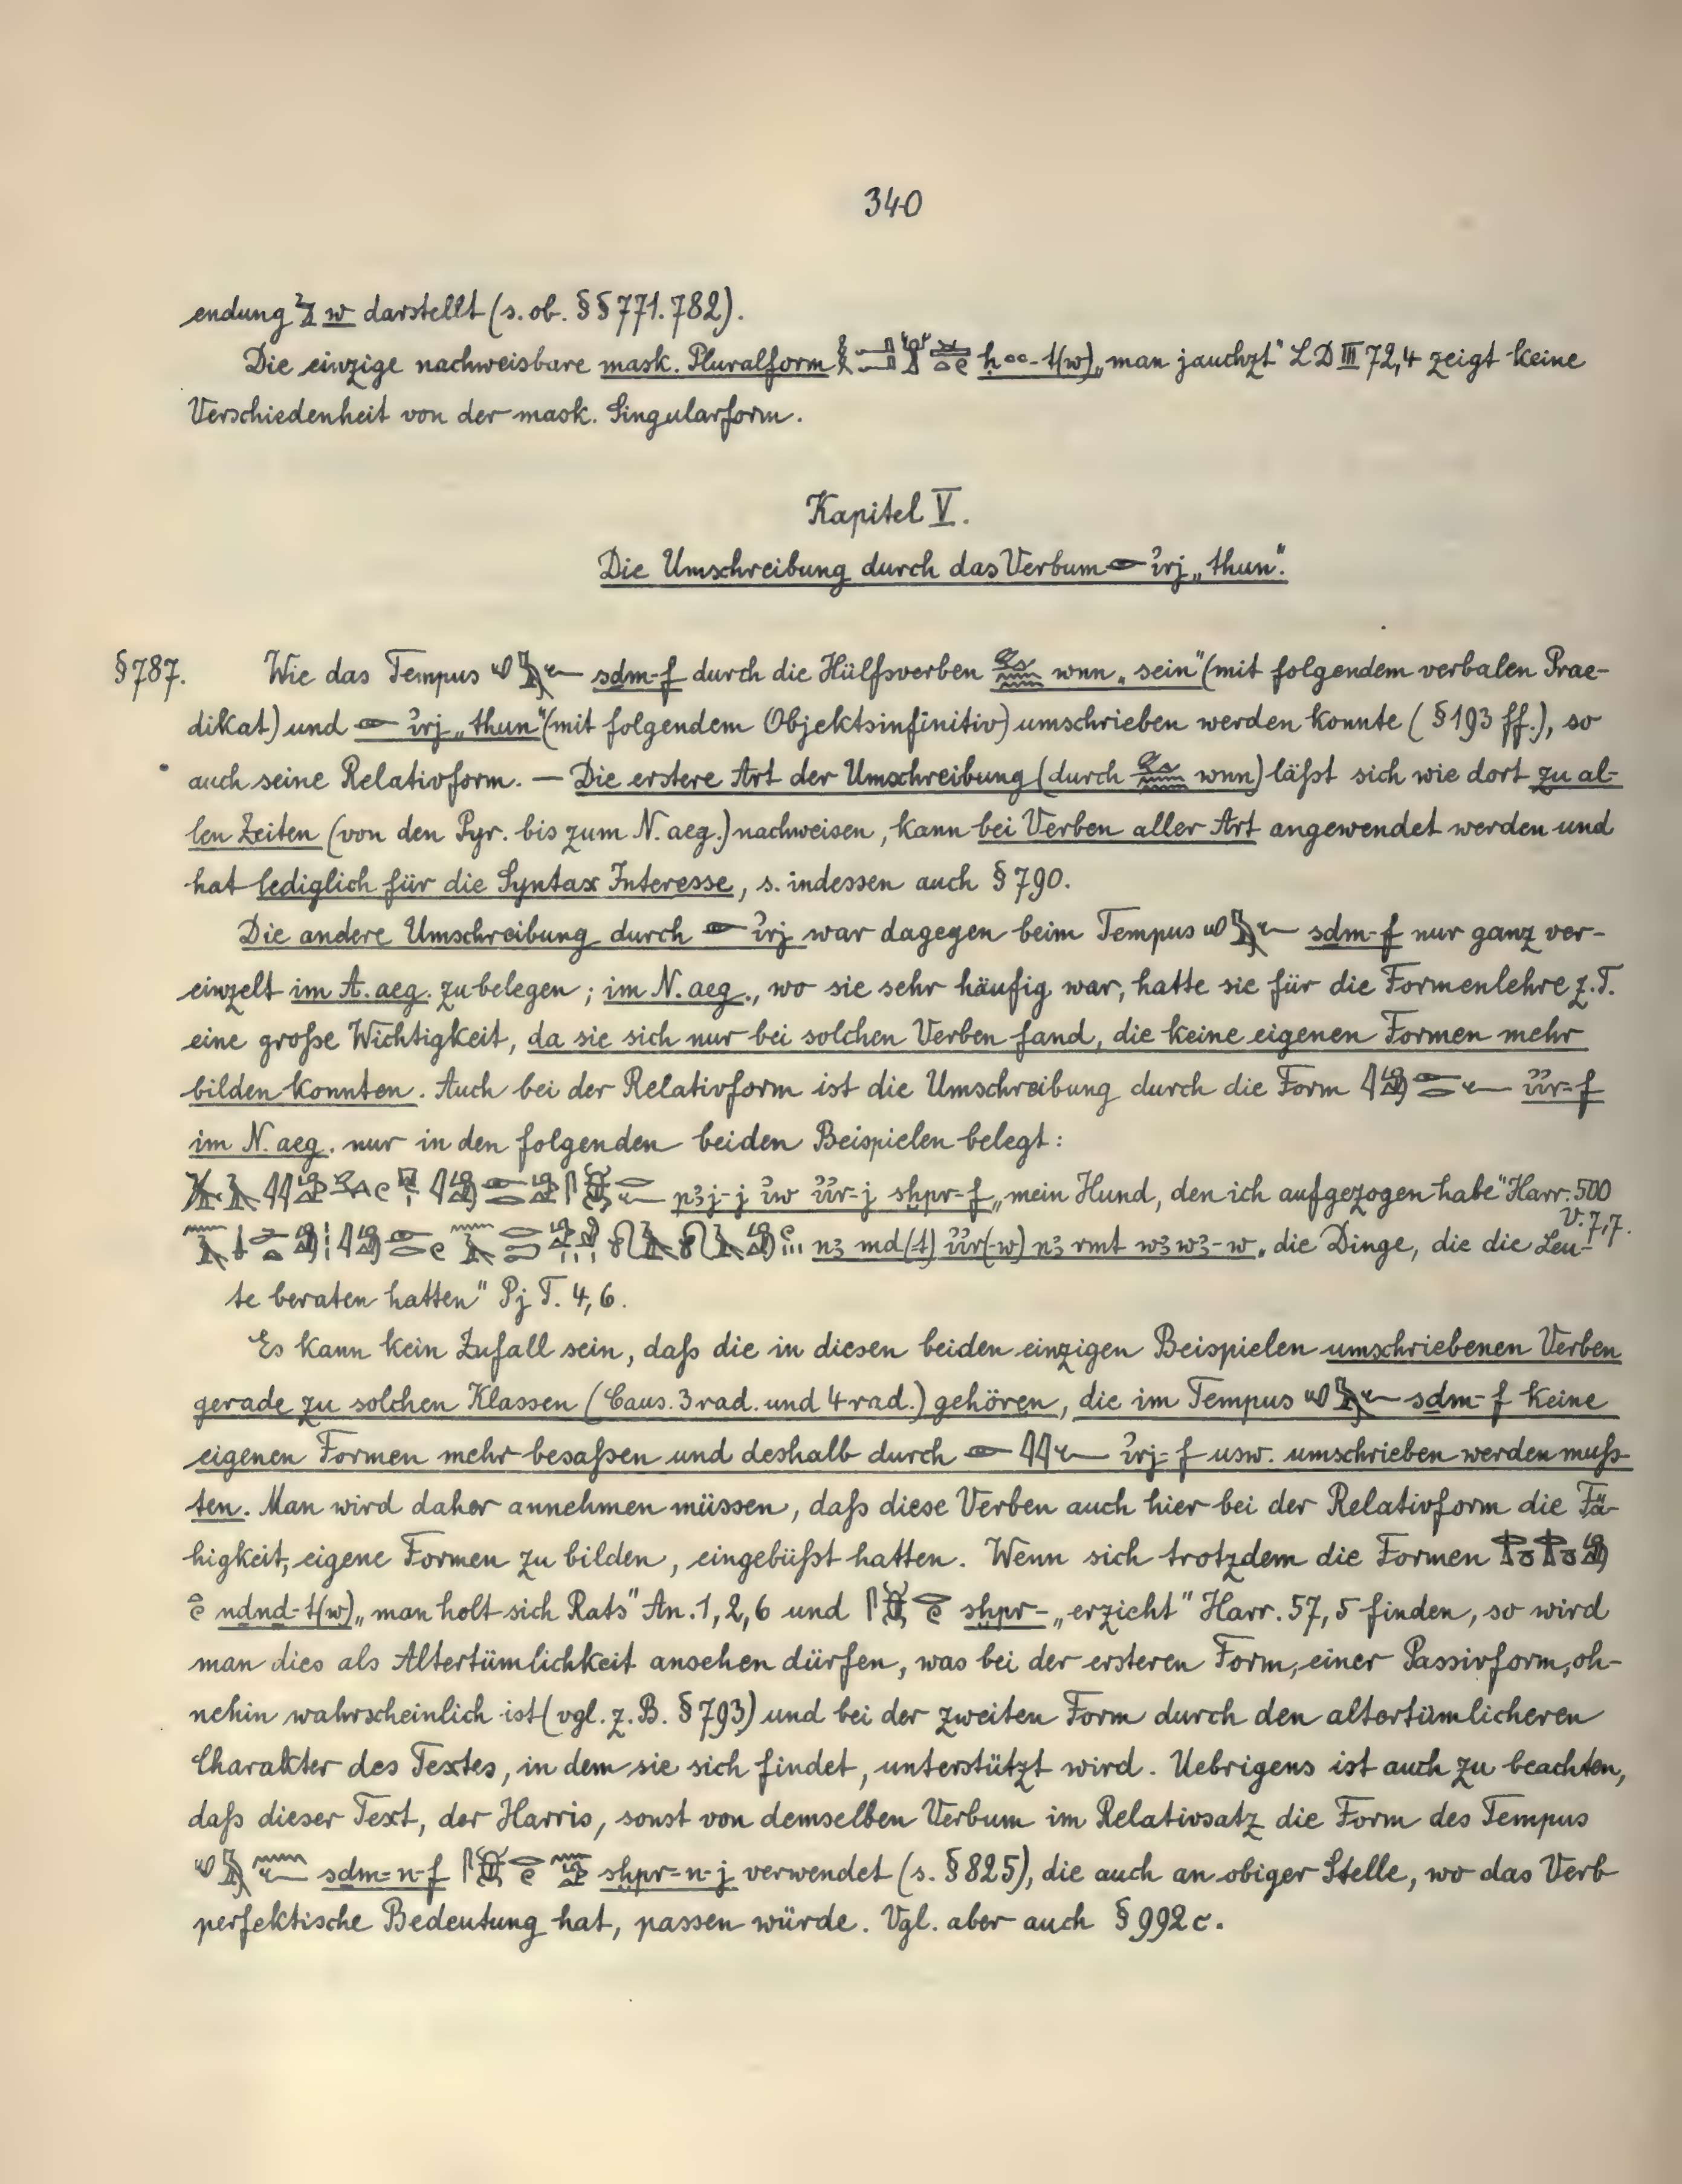 340
endung 𓅱 w darstellt (s. ob. §§ 771. 782).
Die einzige nachweisbare mask. Pluralform ḥꜥꜥ-t(w) „man jauchzt" LD III 72,4 zeigt keine
Verschiedenheit von der mask. Singularform.
Kapitel V.
Die Umschreibung durch das Verbum 𓁹 ı͗rj „thun".
§ 787. Wie das Tempus 𓄔𓅓𓆑 sḏm-f durch die Hülfsverben 𓃹𓈖𓈖 wnn „sein" (mit folgendem verbalen Prae-
dikat) und 𓁹 ı͗rj „thun" (mit folgendem Objektsinfinitiv) umschrieben werden konnte (§ 193 ff.), so
auch seine Relativform. — Die erstere Art der Umschreibung (durch 𓃹𓈖𓈖 wnn) läßt sich wie dort zu al-
len Zeiten (von den Pyr. bis zum N. aeg.) nachweisen, kann bei Verben aller Art angewendet werden und
hat lediglich für die Syntax Interesse, s. indessen auch § 790.
Die andere Umschreibung durch 𓁹 ı͗rj war dagegen beim Tempus 𓄔𓅓𓆑 sḏm-f nur ganz ver-
einzelt im A. aeg. zu belegen; im N. aeg., wo sie sehr häufig war, hatte sie für die Formenlehre z. T.
eine große Wichtigkeit, da sie sich nur bei solchen Verben fand, die keine eigenen Formen mehr
bilden konnten. Auch bei der Relativform ist die Umschreibung durch die Form 𓇋𓀁𓁹𓂋𓆑 ı͗ı͗r-f
im N. aeg. nur in den folgenden beiden Beispielen belegt:
pꜣj-j ı͗w ı͗ı͗r-j sḫpr-f „mein Hund, den ich aufgezogen habe" Harr. 500
V. 7,7.
nꜣ md(t) ı͗ı͗r(-w) nꜣ rmt wꜣwꜣ-w „die Dinge, die die Leu-
te beraten hatten" Pj T. 4, 6.
Es kann kein Zufall sein, daß die in diesen beiden einzigen Beispielen umschriebenen Verben
gerade zu solchen Klassen (Caus. 3 rad. und 4 rad.) gehören, die im Tempus 𓄔𓅓𓆑 sḏm-f keine
eigenen Formen mehr besaßen und deshalb durch 𓁹𓇋𓇋𓆑 ı͗rj-f usw. umschrieben werden muß-
ten. Man wird daher annehmen müssen, daß diese Verben auch hier bei der Relativform die Fä-
higkeit, eigene Formen zu bilden, eingebüßt hatten. Wenn sich trotzdem die Formen
nḏnḏ-t(w) „man holt sich Rats" An. 1, 2, 6 und sḫpr- „erzieht" Harr. 57, 5 finden, so wird
man dies als Altertümlichkeit ansehen dürfen, was bei der ersteren Form, einer Passivform, oh-
nehin wahrscheinlich ist (vgl. z. B. § 793) und bei der zweiten Form durch den altertümlicheren
Charakter des Textes, in dem sie sich findet, unterstützt wird. Uebrigens ist auch zu beachten,
daß dieser Text, der Harris, sonst von demselben Verbum im Relativsatz die Form des Tempus
𓄔𓅓𓈖𓆑 sḏm-n-f sḫpr-n-j verwendet (s. § 825), die auch an obiger Stelle, wo das Verb
perfektische Bedeutung hat, passen würde. Vgl. aber auch § 992 c.